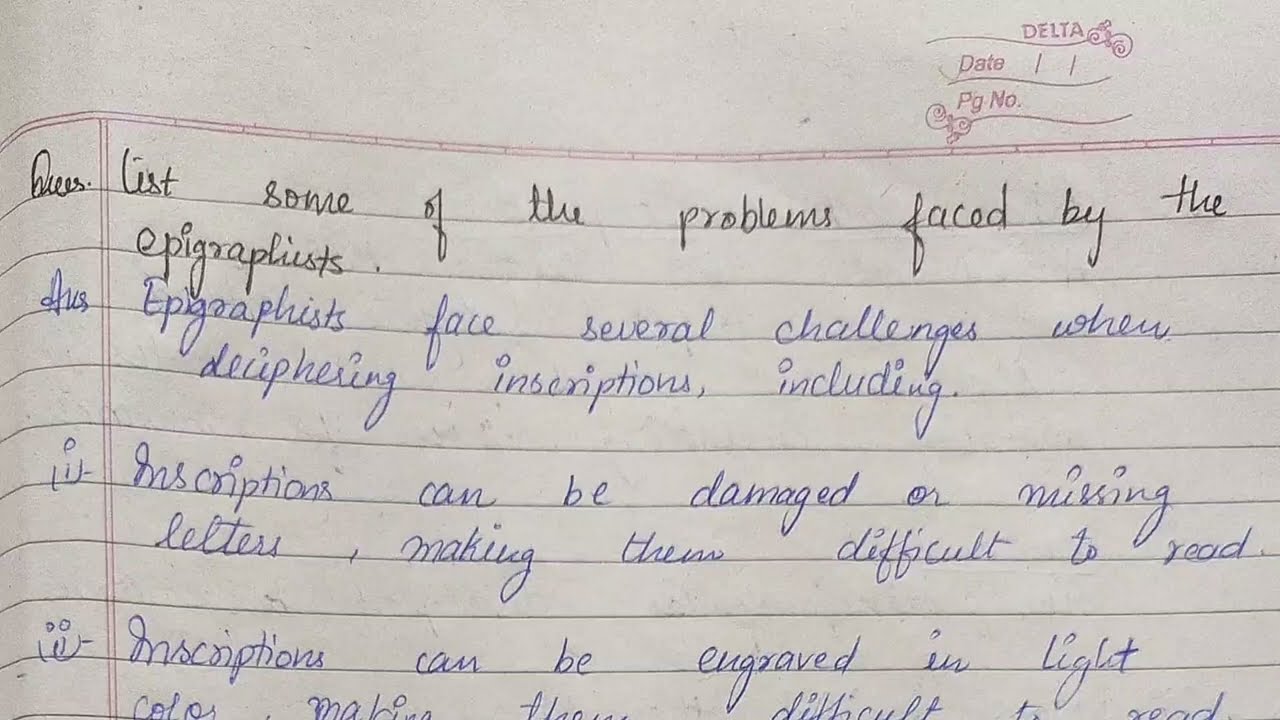 DELTA
Date / /
Pg No.
Ques. List some of the problems faced by the
epigraphists.
Ans Epigraphists face several challenges when
deciphering inscriptions, including.
(i)- Inscriptions can be damaged or missing
letters, making them difficult to read.
(ii)- Inscriptions can be engraved in light
color, making them difficult to read